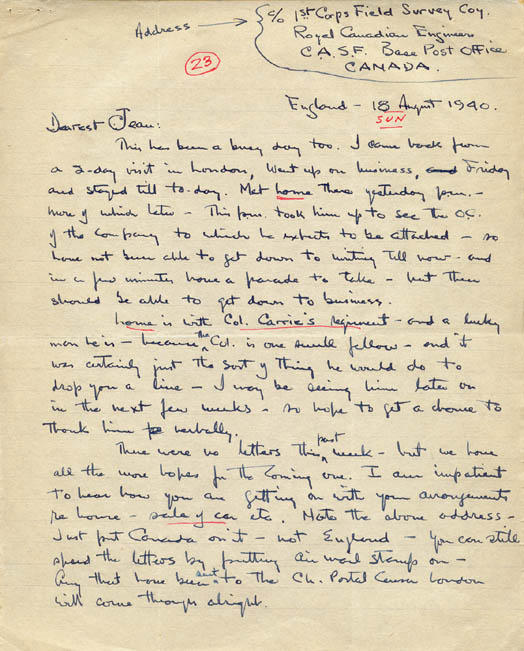 Address → c/o 1st Corps Field Survey Coy.
Royal Canadian Engineers
C.A.S.F. Base Post Office
CANADA.
23
England – 18 August 1940.
SUN
Dearest Jean:
This has been a busy day too. I came back from
a 2-day visit in London, Went up on business, Friday
and stayed till to-day. Met there yesterday p.m. –
more of which later – This p.m. took him up to see the O.C.
of the company to which he expects to be attached – so
have not been able to get down to writing till now – and
in a few minutes have a parade to take – but then
should be able to get down to business.
is with Col. Carrie's regiment – and a lucky
man he is – because the Col. is one swell fellow – and it
was certainly just the sort of thing he would do to
drop you a line – I may be seeing him later on
in the next few weeks – so hope to get a chance to
thank him verbally.
There were no letters this past week – but we have
all the more hopes for the coming one. I am impatient
to hear how you are getting on with your arrangements
re home – sale of car etc. Note the above address –
Just put Canada on it – not England – you can still
speed the letters by putting air mail stamps on –
Any that have been sent to the Ch. Postal Censor London
will come through alright.